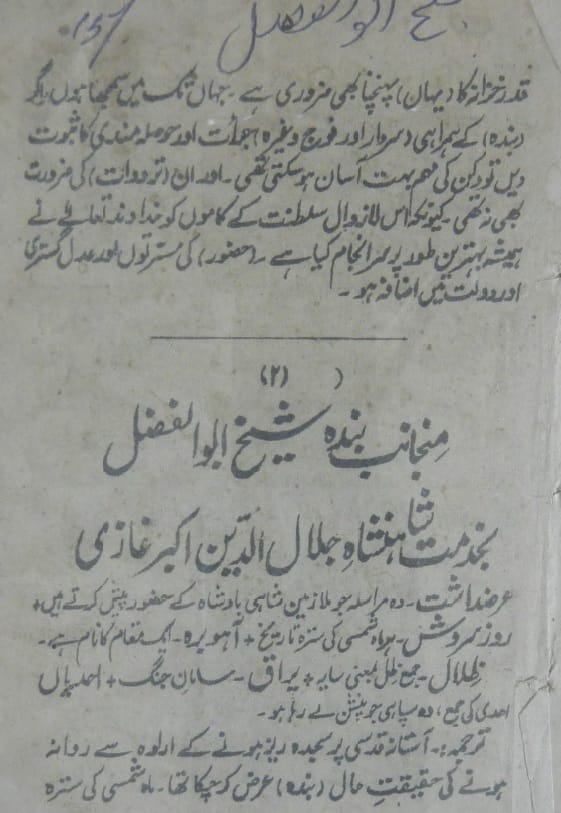 شیخ ابوالفضل
15/
قدر خزانہ کا (یہان) پہنچنا بھی ضروری ہے ۔ جہاں تک میں سمجھتا ہوں اگر
(بندہ) کے ہمراہی (سردار اور فوج وغیرہ) جرأت اور حوصلہ مندی کا ثبوت
دیں تو دکن کی مہم بہت آسان ہو سکتی تھی ۔ اور ان (ترددات) کی ضرورت
بھی نہ تھی ۔ کیونکہ اس لازوال سلطنت کے کاموں کو خداوند تعالےٰ نے
ہمیشہ بہترین طور پر سرانجام کیا ہے ۔ (حضور) کی مسرتوں اور عدل گستری
اور دولت میں اضافہ ہو ۔
(۲)
منجانب بندہ شیخ ابوالفضل
بخدمت شاہنشاہِ جلال الدّین اکبر غازی
عرضداشت ۔ وہ مراسلہ جو ملازمین شاہی بادشاہ کے حضور پیش کرتے ہیں +
روز سروش ۔ ہر ماہ شمسی کی سترہ تاریخ + آہوبرہ ۔ ایک مقام کا نام ہے ۔
ظلال ۔ جمع ظل بمعنی سایہ + یراق ۔ سامانِ جنگ + احدیاں
احدی کی جمع ، وہ سپاہی جو پنشن لے رہا ہو ۔
ترجمہ :۔ آستانہ قدسی پر سجدہ ریز ہونے کے ارادہ سے روانہ
ہونے کی حقیقتِ حال (بندہ) عرض کر چکا تھا ۔ ماہ شمسی کی سترہ